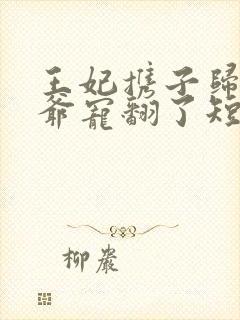 王妃携子歸
爺寵翻了短
柳巖